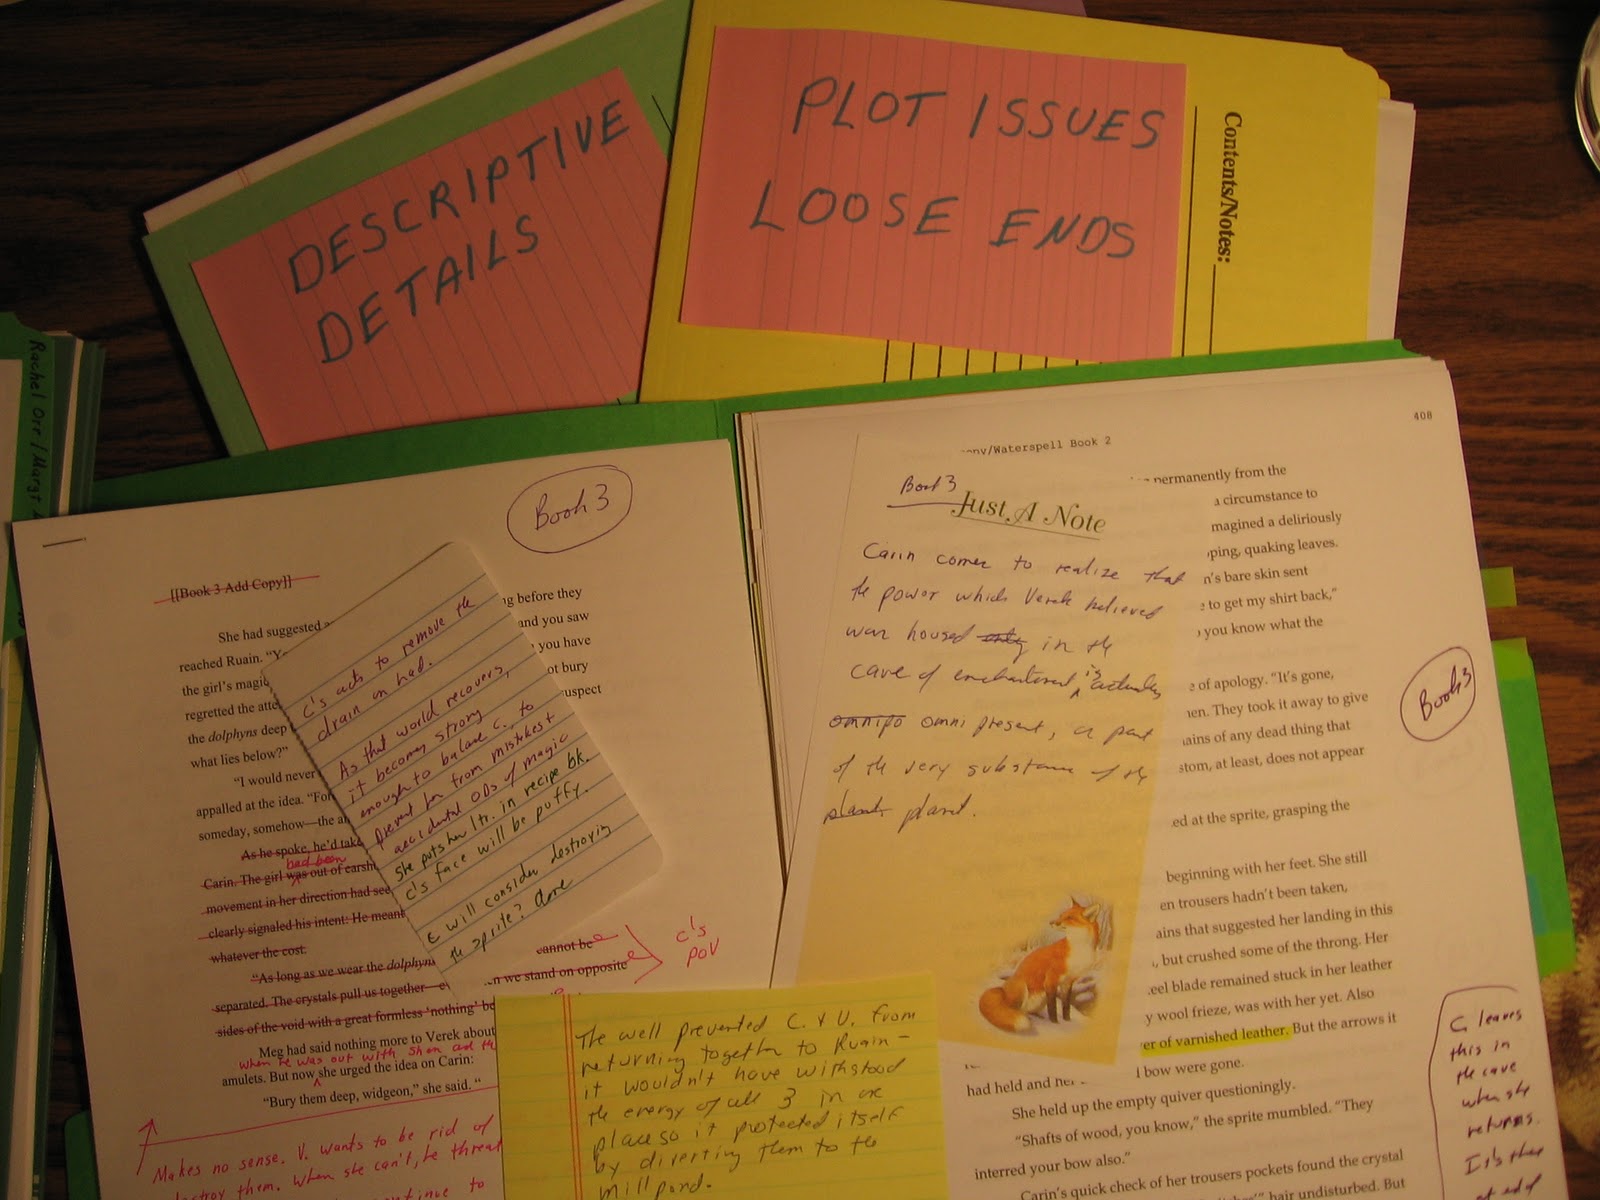 DESCRIPTIVE
DETAILS
PLOT ISSUES
LOOSE ENDS
Contents/Notes:
Rachel Orr / Margt
Book 3
[[Book 3 Add Copy]]
She had suggested
reached Ruain. "Y
the girl's magi
regretted the atte
the dolphyns deep
what lies below?"
"I would never
appalled at the idea. "For
someday, somehow—the a
As he spoke, he'd take
had been
Carin. The girl was out of earsh
movement in her direction had see
clearly signaled his intent: He meant
whatever the cost.
"As long as we wear the dolphyns
separated. The crystals pull us together—e
sides of the void with a great formless 'nothing' be
Meg had said nothing more to Verek about
when he was out with Shen and the
amulets. But now she urged the idea on Carin:
"Bury them deep, widgeon," she said. "
Makes no sense. V. wants to be rid of
destroy them. When she can't, he threat
continue to
ng before they
and you saw
you have
ot bury
suspect
cannot be
n we stand on opposite
C's
POV
C's acts to remove the
drain on had.
As that world recovers,
it becomes strong
enough to balance C. to
prevent her from mistakes &
accidental ODs of magic
She puts her ltr. in recipe bk.
C's face will be puffy.
C will consider destroying
the sprite? Done
The well prevented C. & V. from
returning together to Ruain—
it wouldn't have withstood
the energy of all 3 in one
place so it protected itself
by diverting them to the
millpond.
408
opy/Waterspell Book 2
Book 3
Just A Note
Carin comes to realize that
the power which Verek believed
was housed only in the
cave of enchantment is actually
omnipo omnipresent, a part
of the very substance of the
planet planet.
permanently from the
a circumstance to
magined a deliriously
ping, quaking leaves.
n's bare skin sent
e to get my shirt back,"
you know what the
e of apology. "It's gone,
en. They took it away to give
ains of any dead thing that
stom, at least, does not appear
ed at the sprite, grasping the
beginning with her feet. She still
en trousers hadn't been taken,
ains that suggested her landing in this
, but crushed some of the throng. Her
eel blade remained stuck in her leather
y wool frieze, was with her yet. Also
er of varnished leather. But the arrows it
had held and her
l bow were gone.
She held up the empty quiver questioningly.
"Shafts of wood, you know," the sprite mumbled. "They
interred your bow also."
Carin's quick check of her trousers pockets found the crystal
hair undisturbed. But
Book 3
C. leaves
this in
the cave
when she
returns.
It's there
at end of